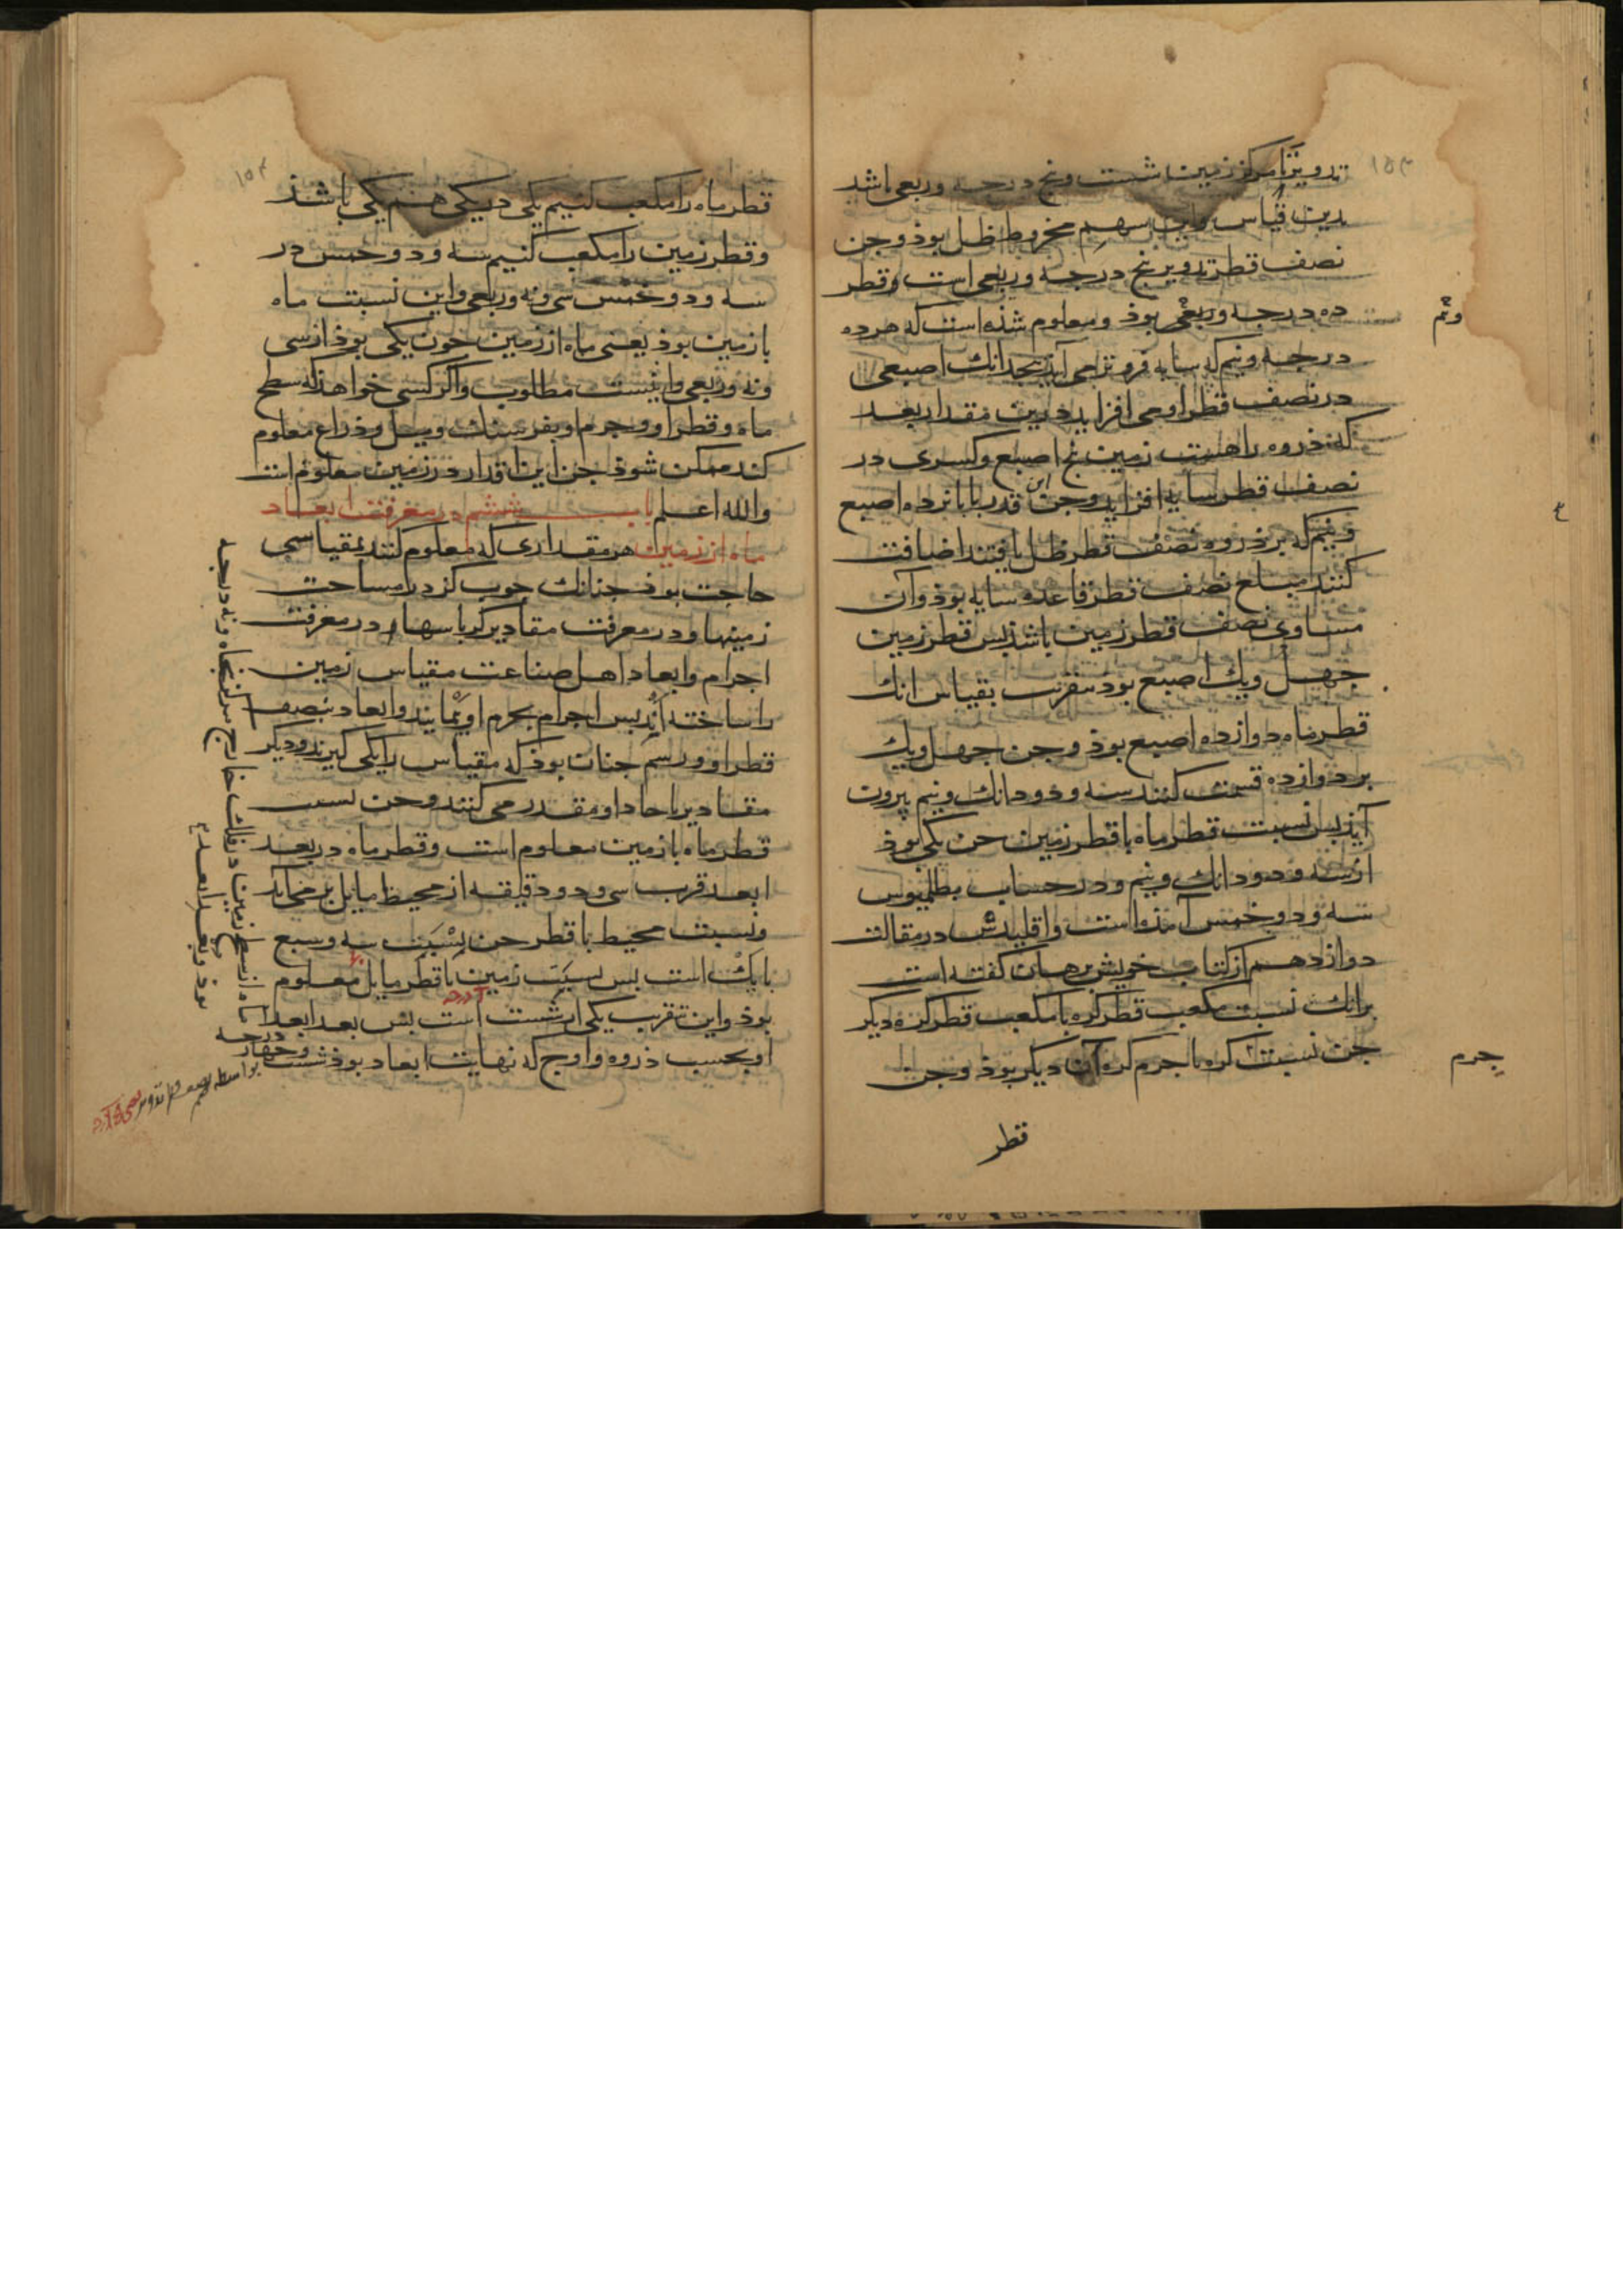 ۱۵۳
تدویر تا مرکز زمین شست و پنج درجه و ربعی باشد
بدین قیاس واین سهم مخروط ظل بوذ وجن
نصف قطر تدویر پنج درجه و ربعی است و قطر
ده درجه و ربعی بوذ و معلوم شذه است که هر ده
ونیم
درجه ونیم که سایه فروتر می آید پنجدانک اصبعی
در نصف قطر او می افزاید بدین مقدار بعد
که ذروه راهست زمین پنج اصبع وکسری در
نصف قطر سایه افزاید وجن این قدر را با نزده اصبع
ونیم که بر ذروه نصف قطر ظل یافتند اضافت
کنند مبلغ نصف قطر قاعده سایه بوذ وآن
مساوی نصف قطر زمین باشذ بس قطر زمین
جهل ویک اصبع بوذ بتقریب بقیاس انک
قطر ماه دوازده اصبع بوذ وجن جهل ویک
بر دوازده قسمت کنند سه و دو دانک ونیم بیرون
آیذ بس نسبت قطر ماه با قطر زمین جن یکی بوذ
از سه و دو دانک ونیم ودر حساب بطلمیوس
سه و دو خمس آمذه است واقلیدس در مقالت
دوازدهم از کتاب خویش برهان کفته است
برانک نسبت مکعب قطر کره با مکعب قطر کره دیکر
جن نسبت کره با جرم کره آن دیکر بوذ وجن
جرم
قطر
۱۵۴
قطر ماه را مکعب کنیم یکی در یکی هم یکی باشذ
وقطر زمین را مکعب کنیم سه و دو خمس در
سه و دو خمس سی ونه وربعی واین نسبت ماه
با زمین بوذ یعنی ماه از زمین جون یکی بوذ از سی
ونه وربعی واینست مطلوب واکر کسی خواهذ که سطح
ماه وقطر او وجرم او بفرسنک ومیل وذراع معلوم
کند ممکن شوذ جن این اقدار در زمین معلوم است
والله اعلم باب ششم در معرفت ابعاد
ماه از زمین هر مقداری که معلوم کنند بمقیاسی
حاجت بوذ جنانک جوب کز در مساحت
زمینها ودر معرفت مقادیر کرباسها ودر معرفت
اجرام وابعاد اهل صناعت مقیاس زمین
را ساخته اند بس اجرام بجرم او بیمایند وابعاد بنصف
قطر او ورسم جنان بوذ که مقیاس را یکی کیرند ودیکر
مقادیر باحاد او مقدر می کنند وجن نسبت
قطر ماه با زمین معلوم است وقطر ماه در بعد
ابعد قرب سی و دو دقیقه از محیط مایل بر می آید
ونسبت محیط با قطر جن نسبت سه وسبع
با یک است بس نسبت زمین با قطر مایل معلوم
بوذ واین بتقریب یکی از شست است بس بعد ابعد
او بحسب ذروه واوج که نهایت ابعاد بوذ شست وجهار
درجه